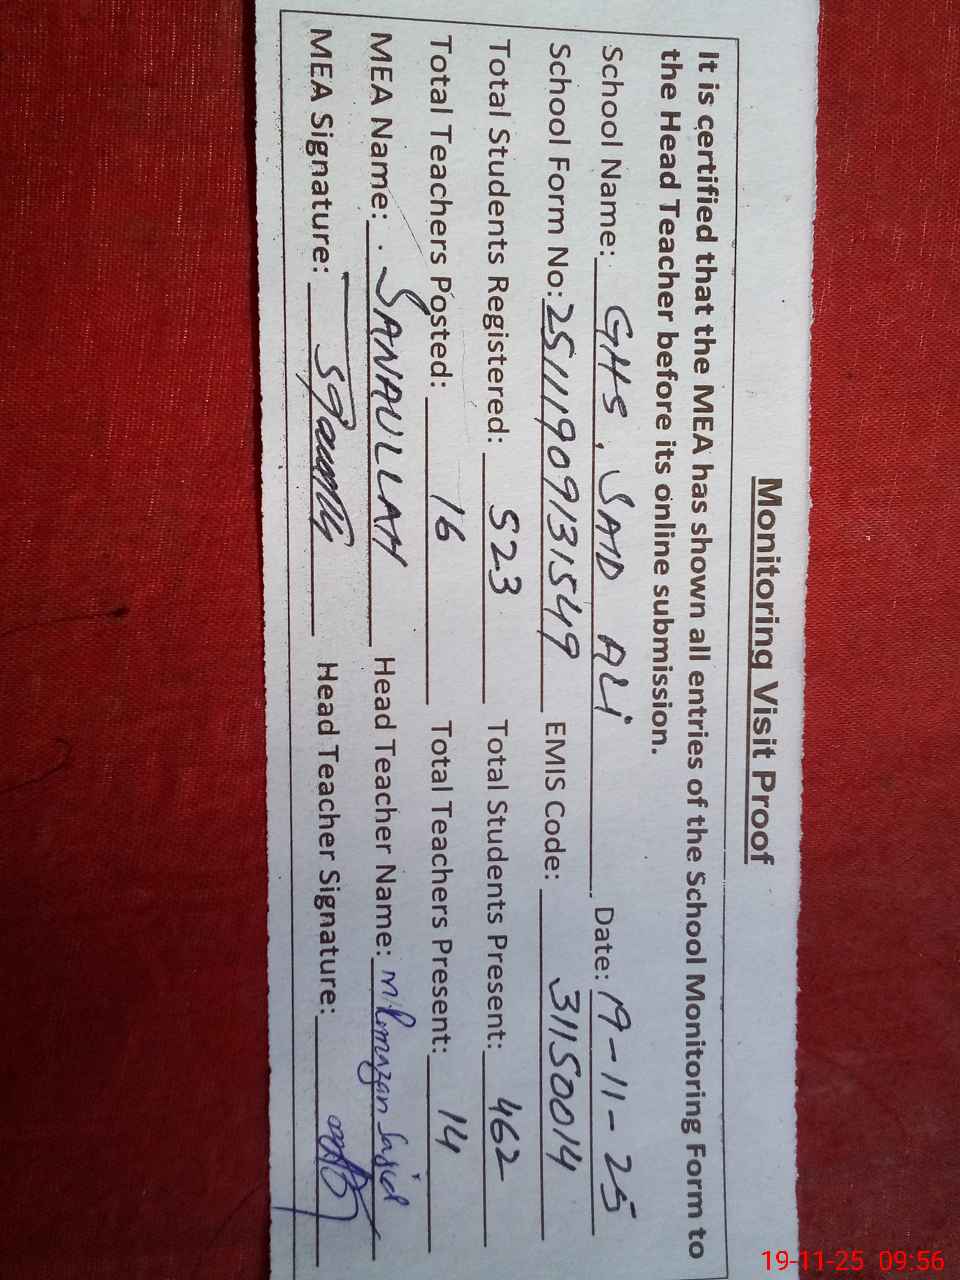 Monitoring Visit Proof
It is certified that the MEA has shown all entries of the School Monitoring Form to
the Head Teacher before its online submission.
School Name: GHS, SAID ALI Date: 19-11-25
School Form No: 2511190913 1549 EMIS Code: 31150014
Total Students Registered: 523 Total Students Present: 462
Total Teachers Posted: 16 Total Teachers Present: 14
MEA Name: SANAULLAH Head Teacher Name: M. Ramazan Sajid
MEA Signature: Head Teacher Signature:
19-11-25 09:56